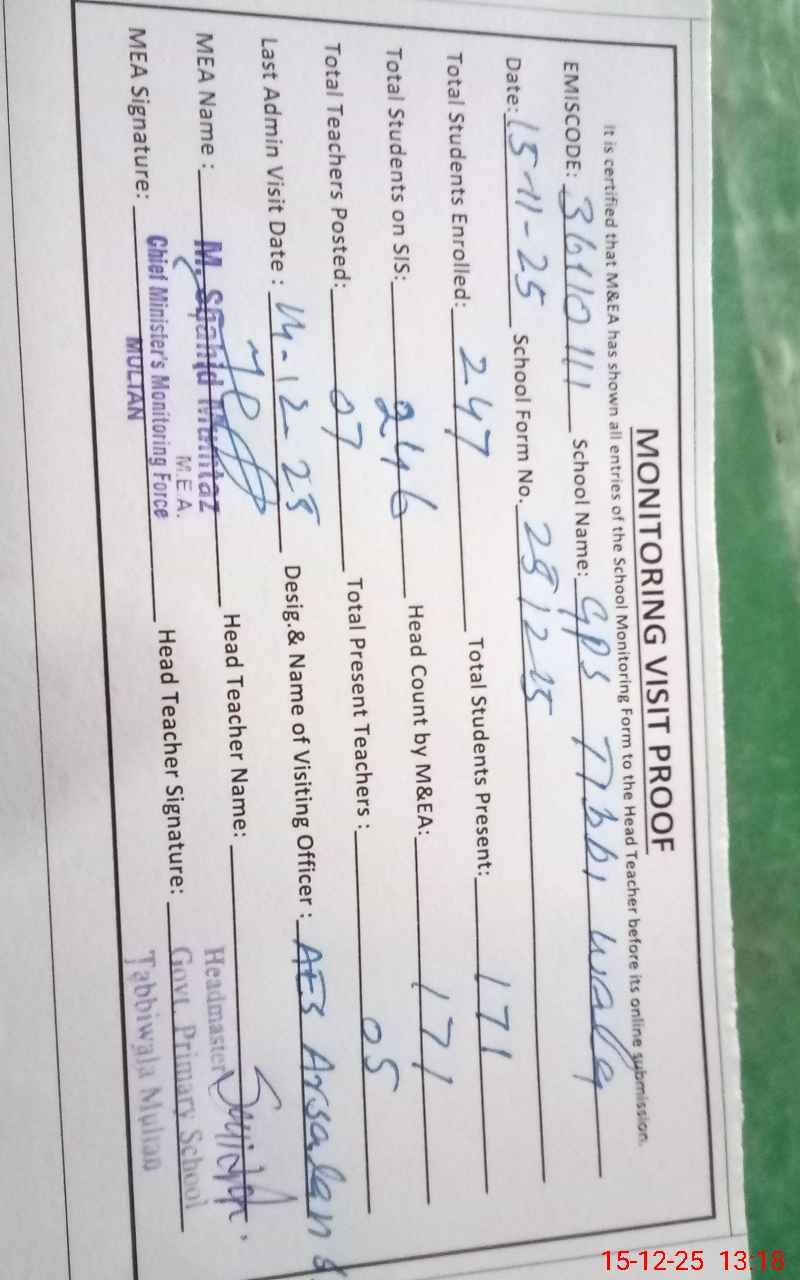 MONITORING VISIT PROOF
It is certified that M&EA has shown all entries of the School Monitoring Form to the Head Teacher before its online submission.
EMISCODE: 36110111 School Name: GPS Tibbi wala
Date: 15-11-25 School Form No.
Total Students Enrolled: 247 Total Students Present: 171
Total Students on SIS: 246 Head Count by M&EA: 171
Total Teachers Posted: 07 Total Present Teachers : 05
Last Admin Visit Date : Desig.& Name of Visiting Officer : AES Arsalan
MEA Name : M. Shahid Mumtaz Head Teacher Name:
M.E.A.
MEA Signature: Chief Minister's Monitoring Force Head Teacher Signature:
MULTAN
Headmaster
Govt. Primary School
Tabbiwala Multan
15-12-25 13:18